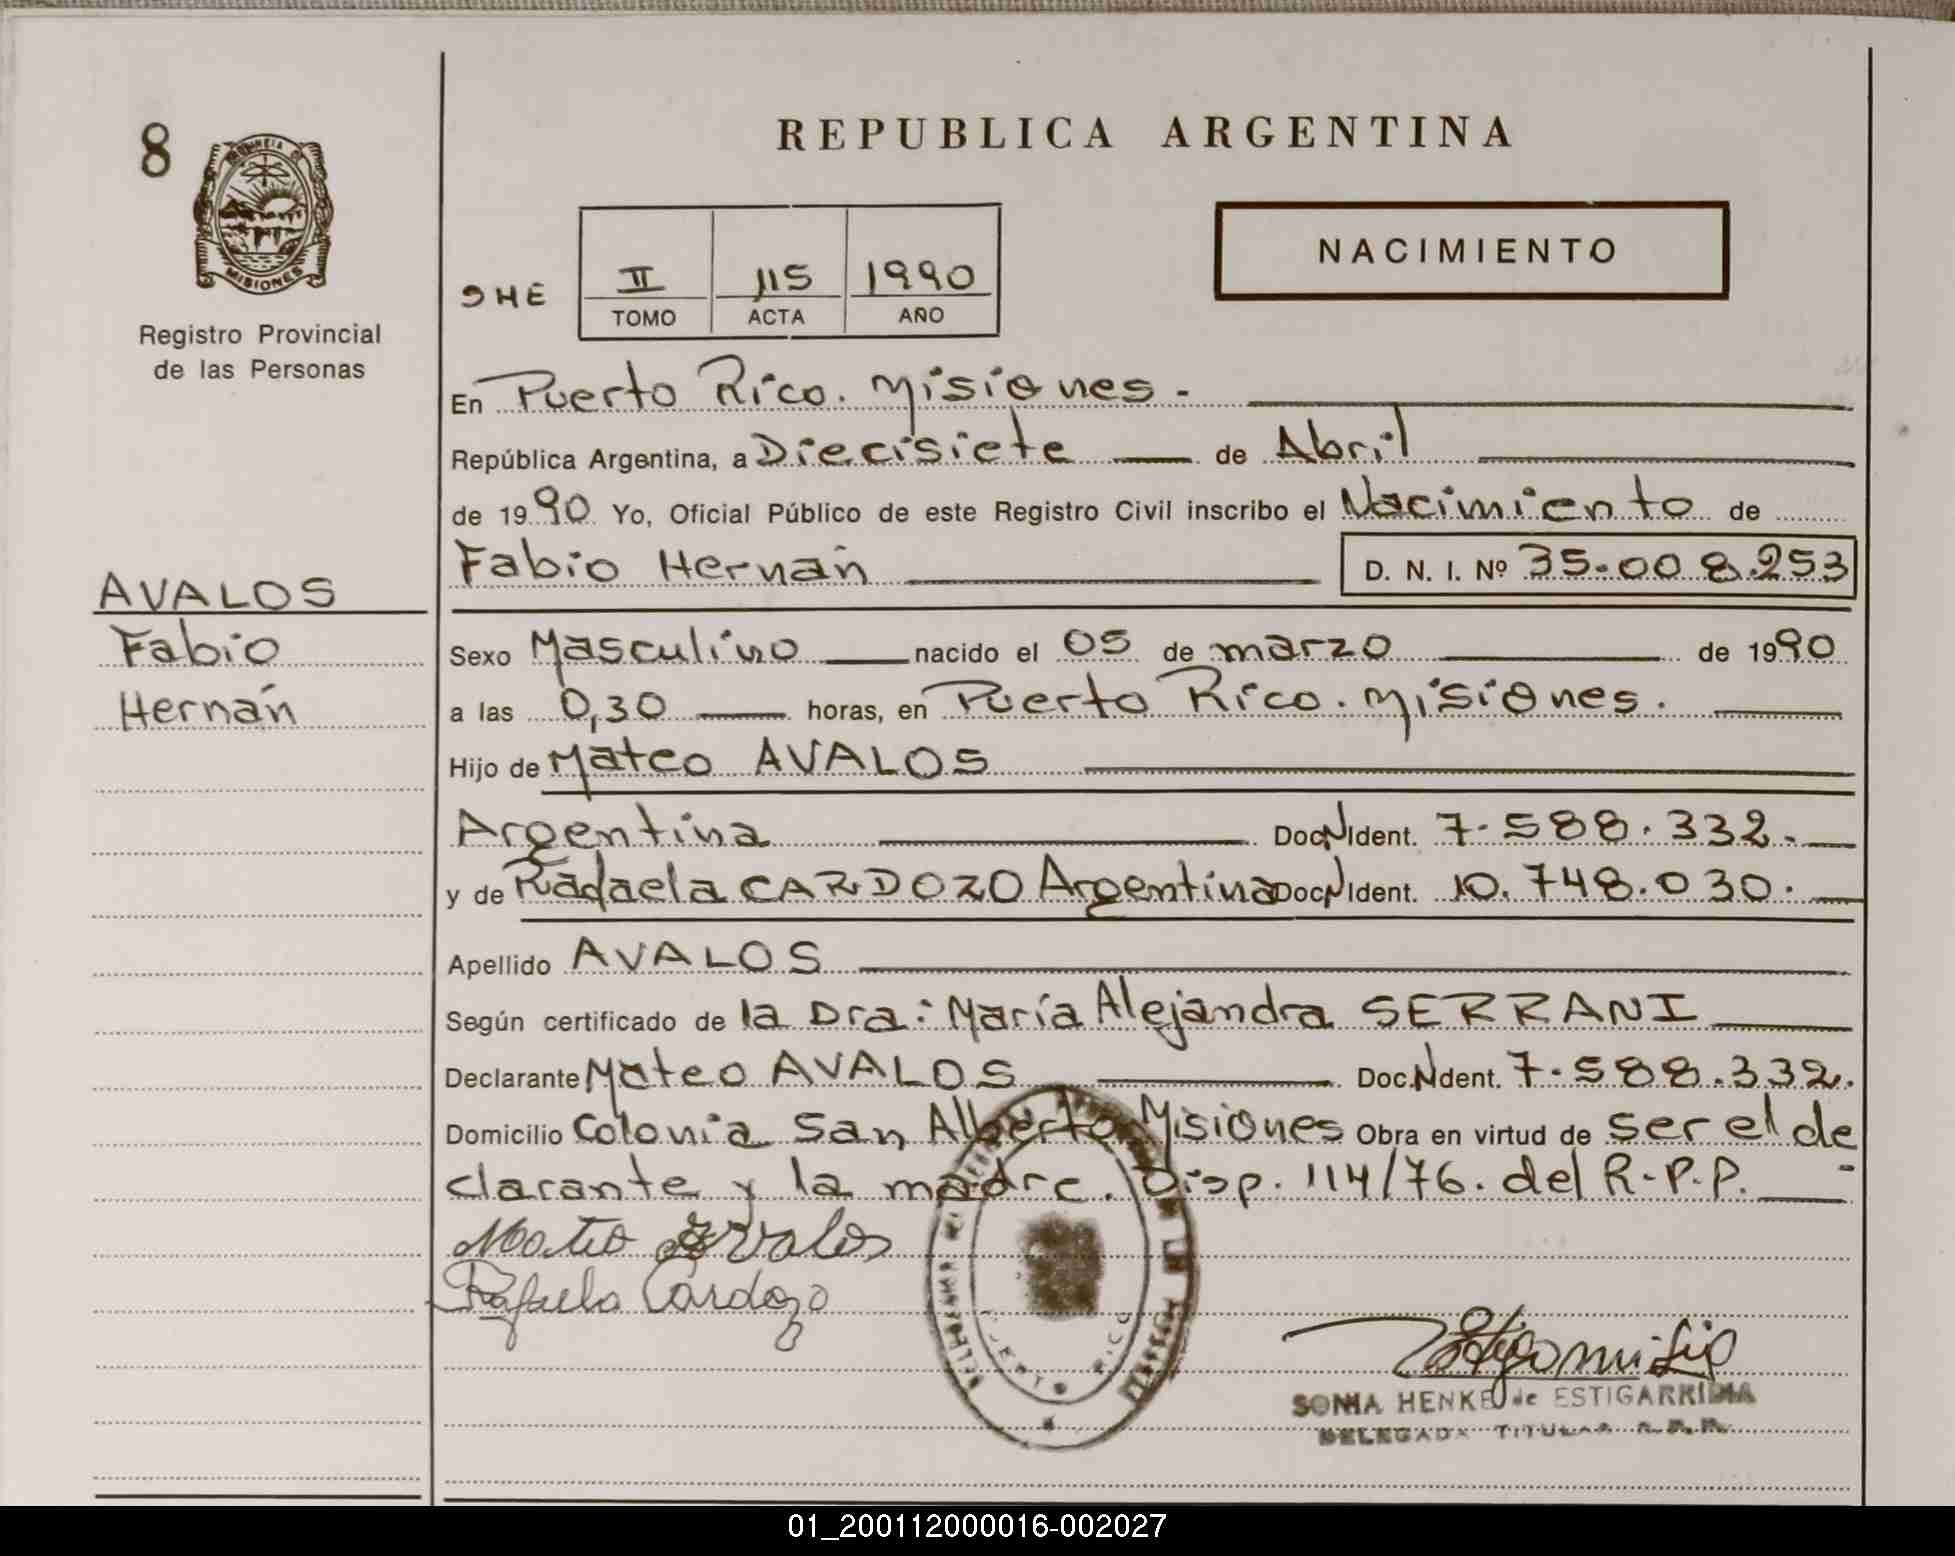 8
PROVINCIA DE
MISIONES
Registro Provincial
de las Personas
AVALOS
Fabio
Hernán
REPUBLICA ARGENTINA
NACIMIENTO
SHE
II 115 1990
TOMO ACTA AÑO
En Puerto Rico. Misiones -
República Argentina, a Diecisiete de Abril
de 1990 Yo, Oficial Público de este Registro Civil inscribo el Nacimiento de
Fabio Hernán D. N. I. Nº 35.008.253
Sexo Masculino nacido el 05 de marzo de 1990
a las 0,30 horas, en Puerto Rico. Misiones.
Hijo de Mateo AVALOS
Argentina Doc. N Ident. 7.588.332.
y de Rafaela CARDOZO Argentina Doc. N Ident. 10.748.030.
Apellido AVALOS
Según certificado de la Dra: María Alejandra SERRANI
Declarante Mateo AVALOS Doc. N Ident. 7.588.332.
Domicilio Colonia San Alberto Misiones Obra en virtud de ser el de
clarante y la madre. Disp. 114/76. del R.P.P. -
Mateo Avalos
Rafaela Cardozo
PUERTO RICO
SONIA HENKE de ESTIGARRIBIA
DELEGADA TITULAR R.P.P.
01_200112000016-002027